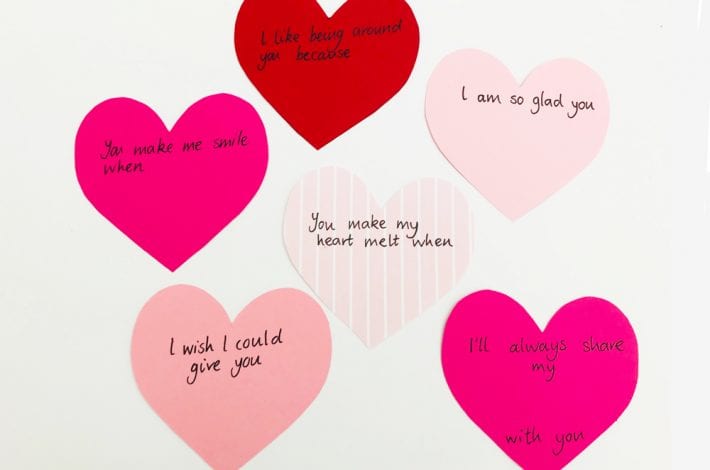 I like being around
you because
I am so glad you
You make me smile
when
You make my
heart melt when
I wish I could
give you
I'll always share
my
with you